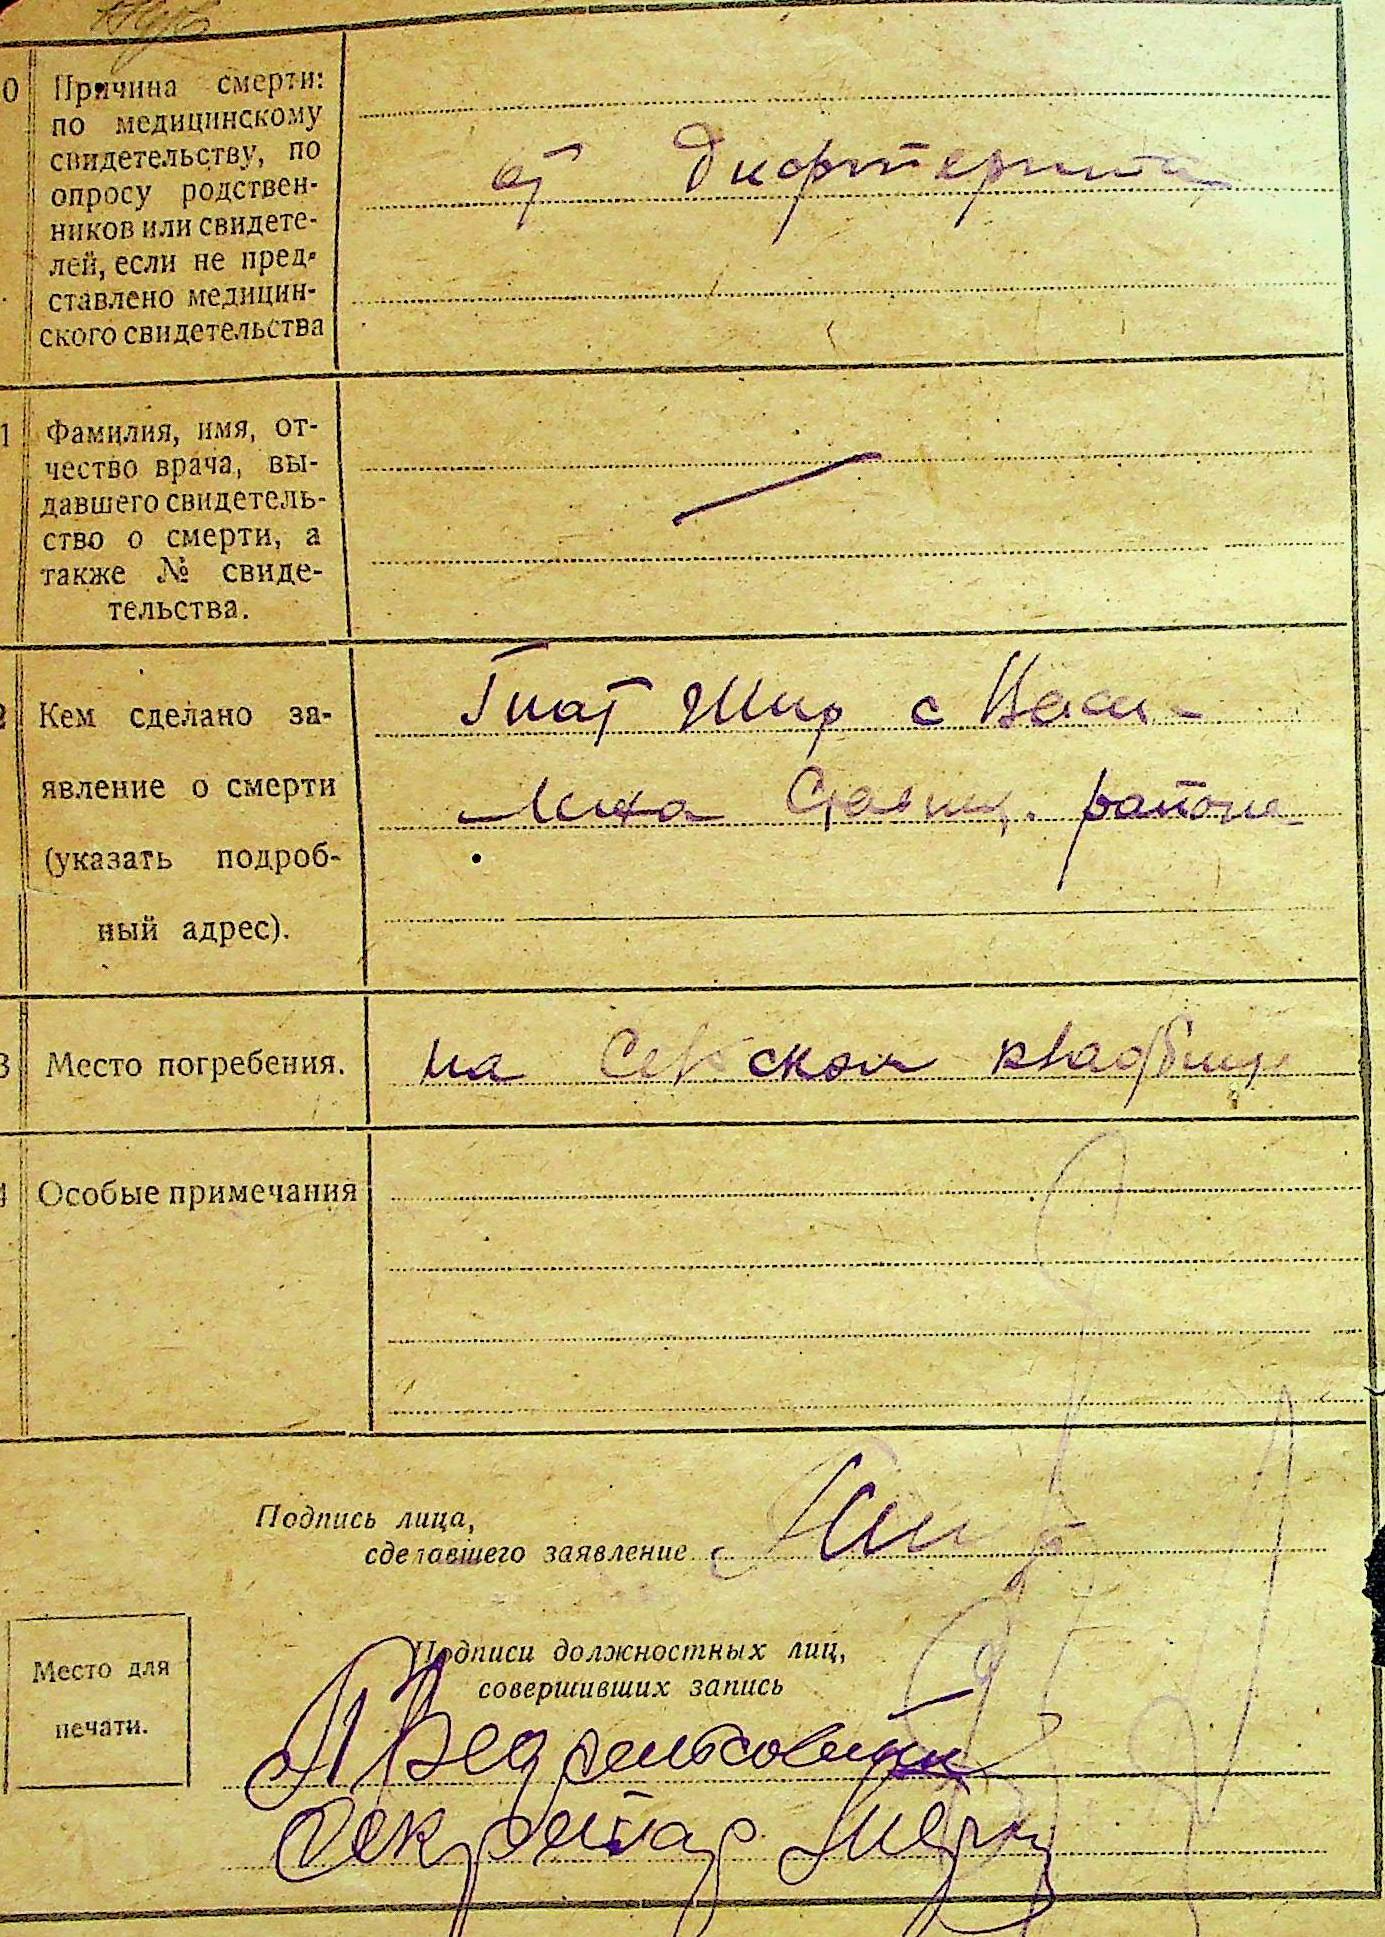 0 Причина смерти:
по медицинскому
свидетельству, по
опросу родствен-
ников или свидете-
лей, если не пред-
ставлено медицин-
ского свидетельства
от дифтерита
1 Фамилия, имя, от-
чество врача, вы-
давшего свидетель-
ство о смерти, а
также № свиде-
тельства.
2 Кем сделано за-
явление о смерти
(указать подроб-
ный адрес).
Гнат с Васи-
района
3 Место погребения.
на кладбище
4 Особые примечания
Подпись лица,
сделавшего заявление
Подписи должностных лиц,
совершивших запись
Место для
печати.
Секретар